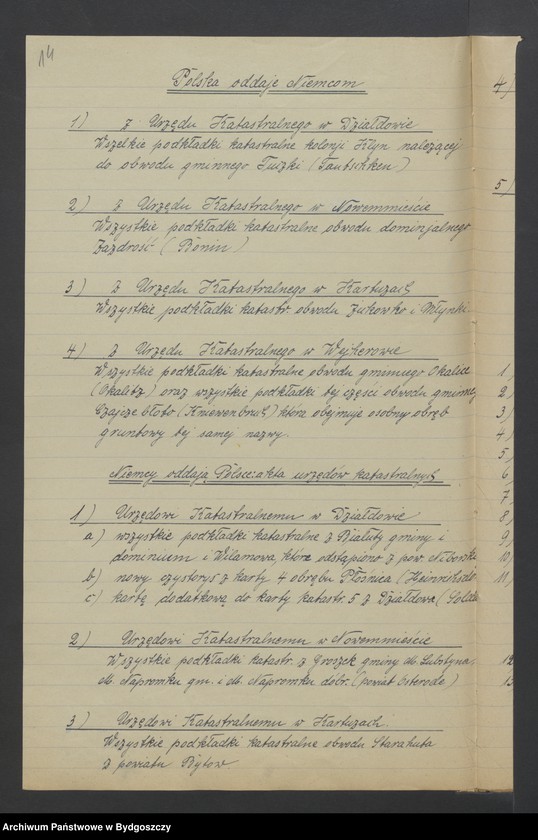 14
Polska oddaje Niemcom
1) z Urzędu Katastralnego w Działdowie
Wszelkie podkładki katastralne kolonji Kłyn należącej
do obwodu gminnego Tuczki (Tautschken)
2) z Urzędu Katastralnego w Nowemmieście
Wszystkie podkładki katastralne obwodu dominjalnego
Zazdrość (Bönin)
3) z Urzędu Katastralnego w Kartuzach
Wszystkie podkładki katastr. obwodu Żukowko i Młynki
4) z Urzędu Katastralnego w Wejherowie
Wszystkie podkładki katastralne obwodu gminnego Okalice
(Okalitz) oraz wszystkie podkładki tej części obwodu gminnej
Czajcze błoto (Kniewenbruch) która obejmuje osobny obręb
gruntowy tej samej nazwy.
Niemcy oddają Polsce: akta urzędów katastralnych
1) Urzędowi Katastralnemu w Działdowie
a) wszystkie podkładki katastralne z Białuty gminy i
dominium i Wilamowa, które odstąpiono z pow. Niborska
b) nowy czystorys z karty 4 obrębu Płośnica
c) kartę dodatkową do karty katastr. 5 z Działdowa
2) Urzędowi Katastralnemu w Nowemmieście
Wszystkie podkładki katastr. z Groszek gminy do Lubstyna,
M. Napromku gm. i M. Napromku dobr. (powiat Osterode)
3) Urzędowi Katastralnemu w Kartuzach.
Wszystkie podkładki katastralne obwodu Starahuta
z powiatu Bytow
4)
5)
1)
2)
3)
4)
5)
6)
7)
8)
9)
10)
11)
12
13
Archiwum Państwowe w Bydgoszczy